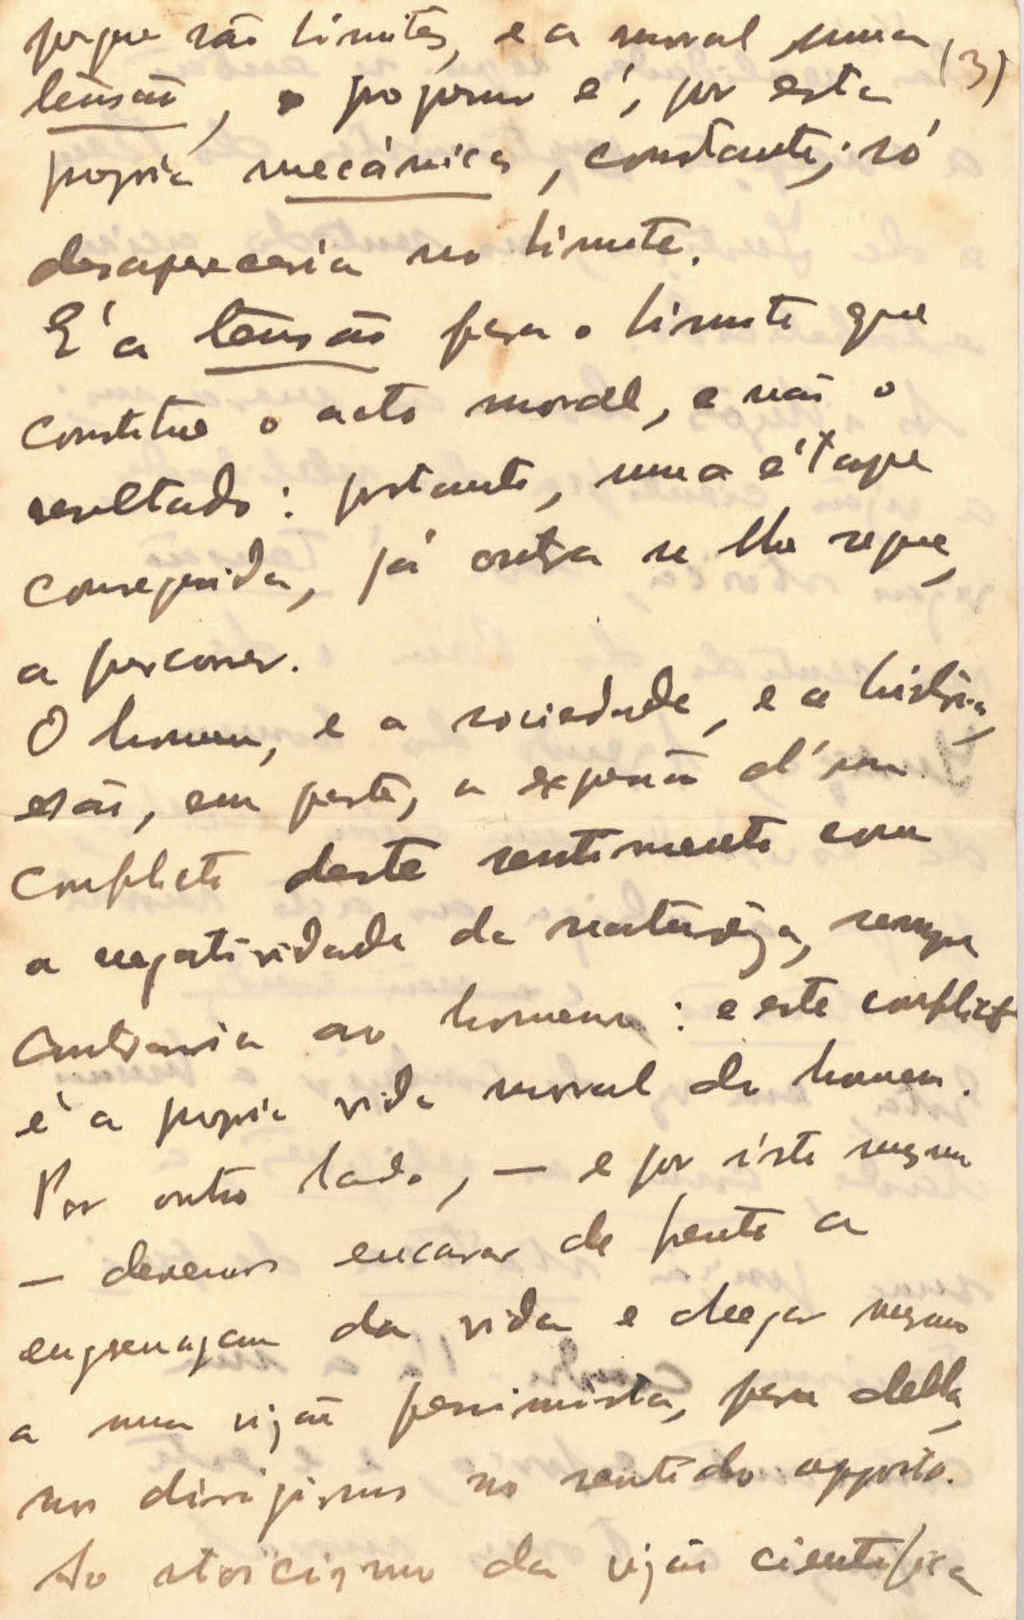 porque são limites, e a moral uma (3)
tensão, o progresso é, por esta
propria mecánica, constante; só
desapareceria no limite.
E' a tensão para o limite que
constitue o acto moral, e não o
resultado: portanto, uma étape
conseguida, já outra se lhe segue,
a percorrer.
O homem, e a sociedade, e a história,
são, em parte, a expressão d'um
conflicto deste sentimento com
a negatividade da naturêza, sempre
contraria ao homem: e este conflicto
é a propria vida moral do homem.
Por outro lado, — e por isto mesmo
— devemos encarar de frente a
engrenagem da vida e chegar mesmo
a uma visão pessimista, para della
nos dirigirmos no sentido opposto.
Ao stoicismo da visão cientifica